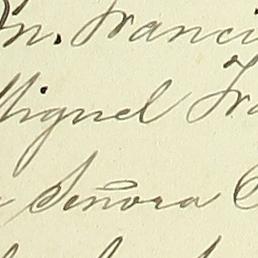 Sn. Franci
Miguel Fra
Señora C